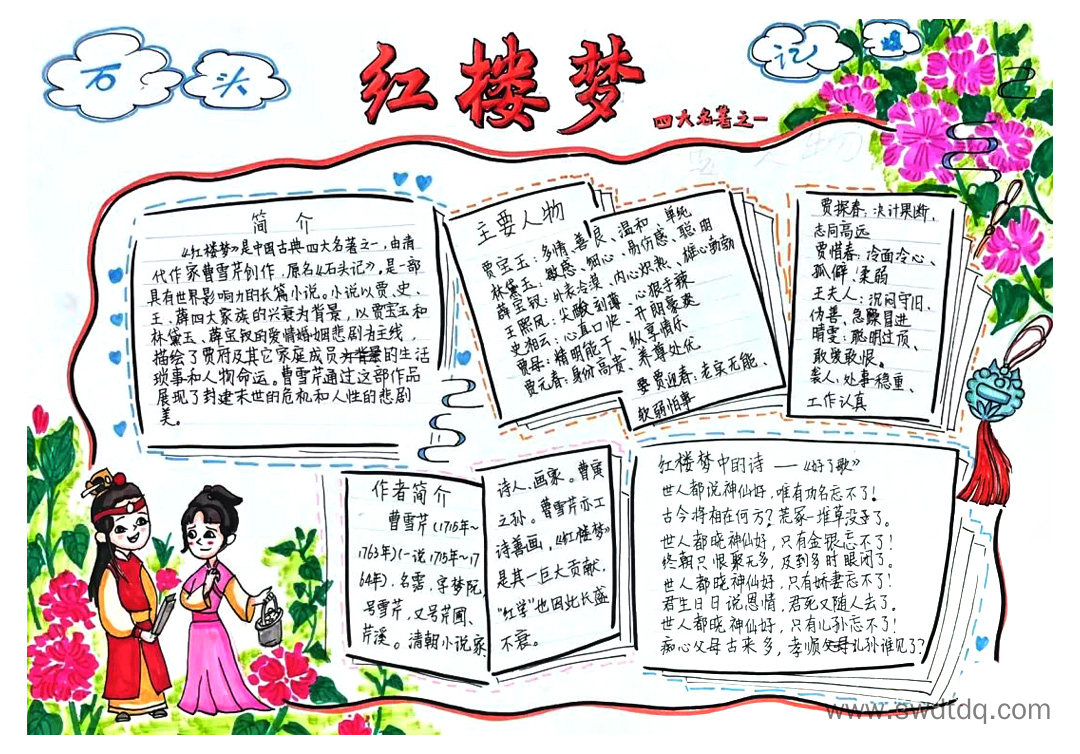 石头
记
红楼梦
四大名著之一
简介
《红楼梦》是中国古典四大名著之一，由清
代作家曹雪芹创作，原名《石头记》，是一部
具有世界影响力的长篇小说。小说以贾、史、
王、薛四大家族的兴衰为背景，以贾宝玉和
林黛玉、薛宝钗的爱情婚姻悲剧为主线，
描绘了贾府及其它家庭成员的生活
琐事和人物命运。曹雪芹通过这部作品
展现了封建末世的危机和人性的悲剧
美。
主要人物
贾宝玉：多情、善良、温和、单纯
林黛玉：敏感、细心、易伤感、聪明
薛宝钗：外表冷漠、内心炽热、雄心勃勃
王熙凤：尖酸刻薄、心狠手辣
史湘云：心直口快、开朗豪爽
贾母：精明能干、纵享情乐
贾元春：身份高贵、养尊处优
贾迎春：老实无能、
软弱怕事
贾探春：决计果断、
志向高远
贾惜春：冷面冷心、
孤僻、柔弱
王夫人：沉闷守旧、
伪善、急躁冒进
晴雯：聪明过顶、
敢爱敢恨。
袭人：处事稳重、
工作认真
作者简介
曹雪芹（1715年~
1763年）（一说1715年~17
64年）.名霑，字梦阮，
号雪芹，又号芹圃、
芹溪。清朝小说家
诗人、画家。曹寅
之孙。曹雪芹亦工
诗善画，《红楼梦》
是其一巨大贡献，
“红学”也因此长盛
不衰。
红楼梦中的诗——《好了歌》
世人都说神仙好，唯有功名忘不了！
古今将相在何方？荒冢一堆草没了。
世人都晓神仙好，只有金银忘不了！
终朝只恨聚无多，及到多时眼闭了。
世人都晓神仙好，只有娇妻忘不了！
君生日日说恩情，君死又随人去了。
世人都晓神仙好，只有儿孙忘不了！
痴心父母古来多，孝顺儿孙谁见了？
www.swdtdq.com